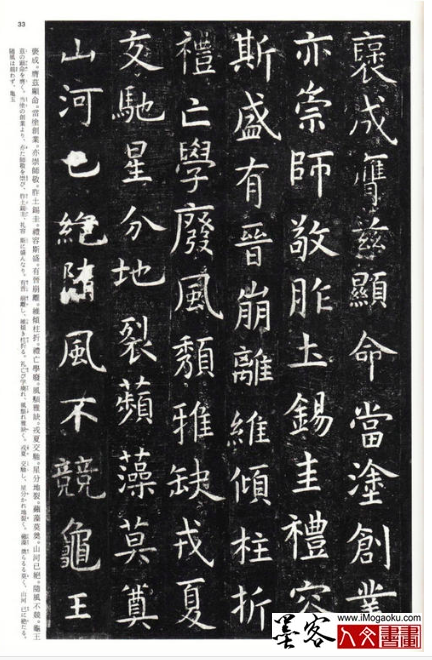 33
褒成膺茲顯命當塗創業
亦崇師敬胙土錫圭禮容
斯盛有晉崩離維傾柱折
禮亡學廢風頹雅缺戎夏
交馳星分地裂蘋藻莫奠
山河已絕隋風不競龜玉
褒成。膺茲顯命。當塗創業。亦崇師敬。胙土錫圭。禮容斯盛。有晉崩離。維傾柱折。禮亡學廢。風頽雅缺。戎夏交馳。星分地裂。蘋藻莫奠。山河已絶。隨風不競。龜玉
隨風は競わず。龜玉
墨客
www.iMogaoku.com
人文書畫